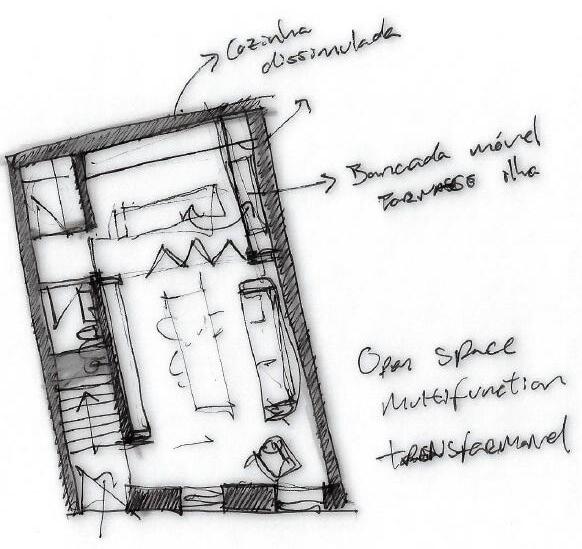 Cozinha
dissimulada
Bancada móvel
TORNASSE ilha
Open space
multifunction
transformavel